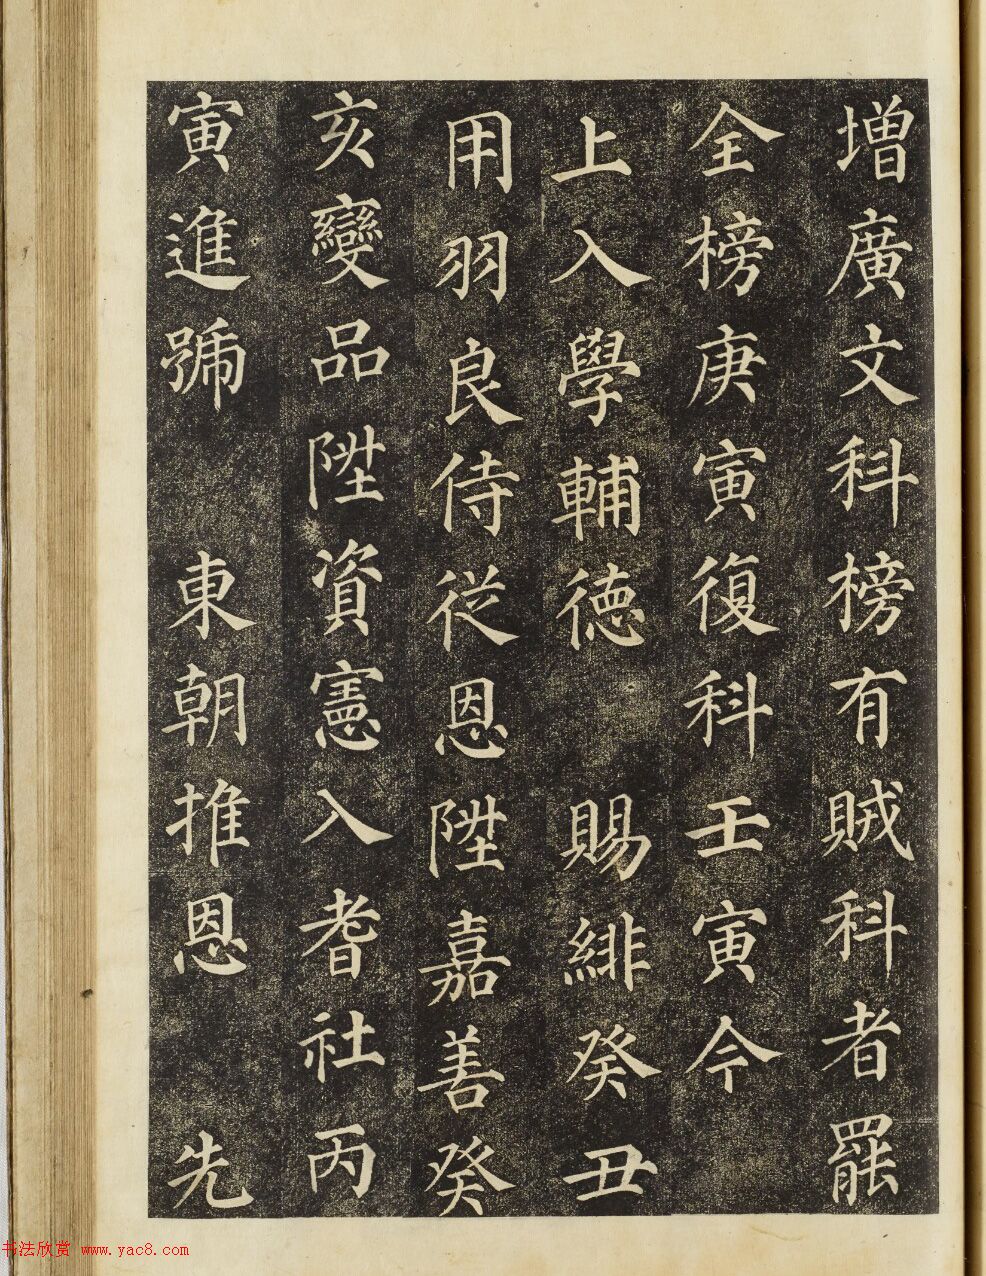 增廣文科榜有賊科者罷
全榜庚寅復科壬寅今
上入學輔徳 賜緋癸丑
用羽良侍從恩陞嘉善癸
亥變品陞資憲入耆社丙
寅進號 東朝推恩 先
书法欣赏 www.yac8.com